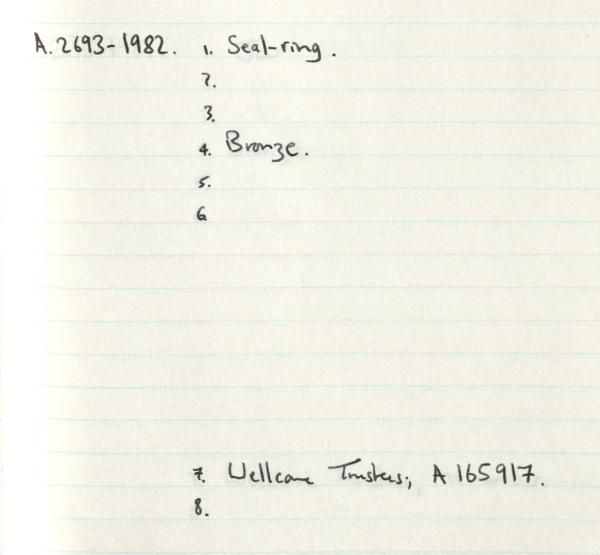 A.2693-1982. 1. Seal-ring.
2.
3.
4. Bronze.
5.
6
7. Wellcome Trustees; A 165917.
8.